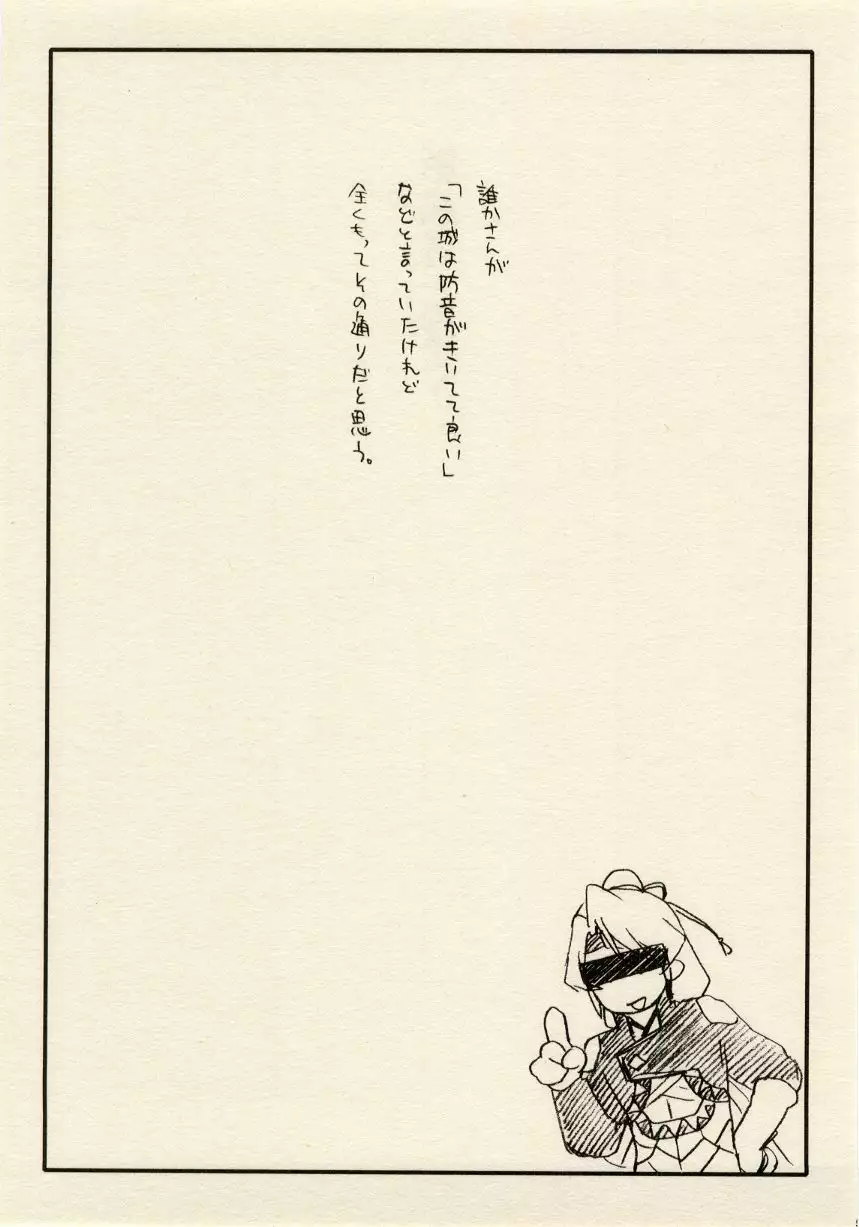 誰かさんが
「この城は防音がきいてて良い」
などと言っていたけれど
全くもってその通りだと思う。